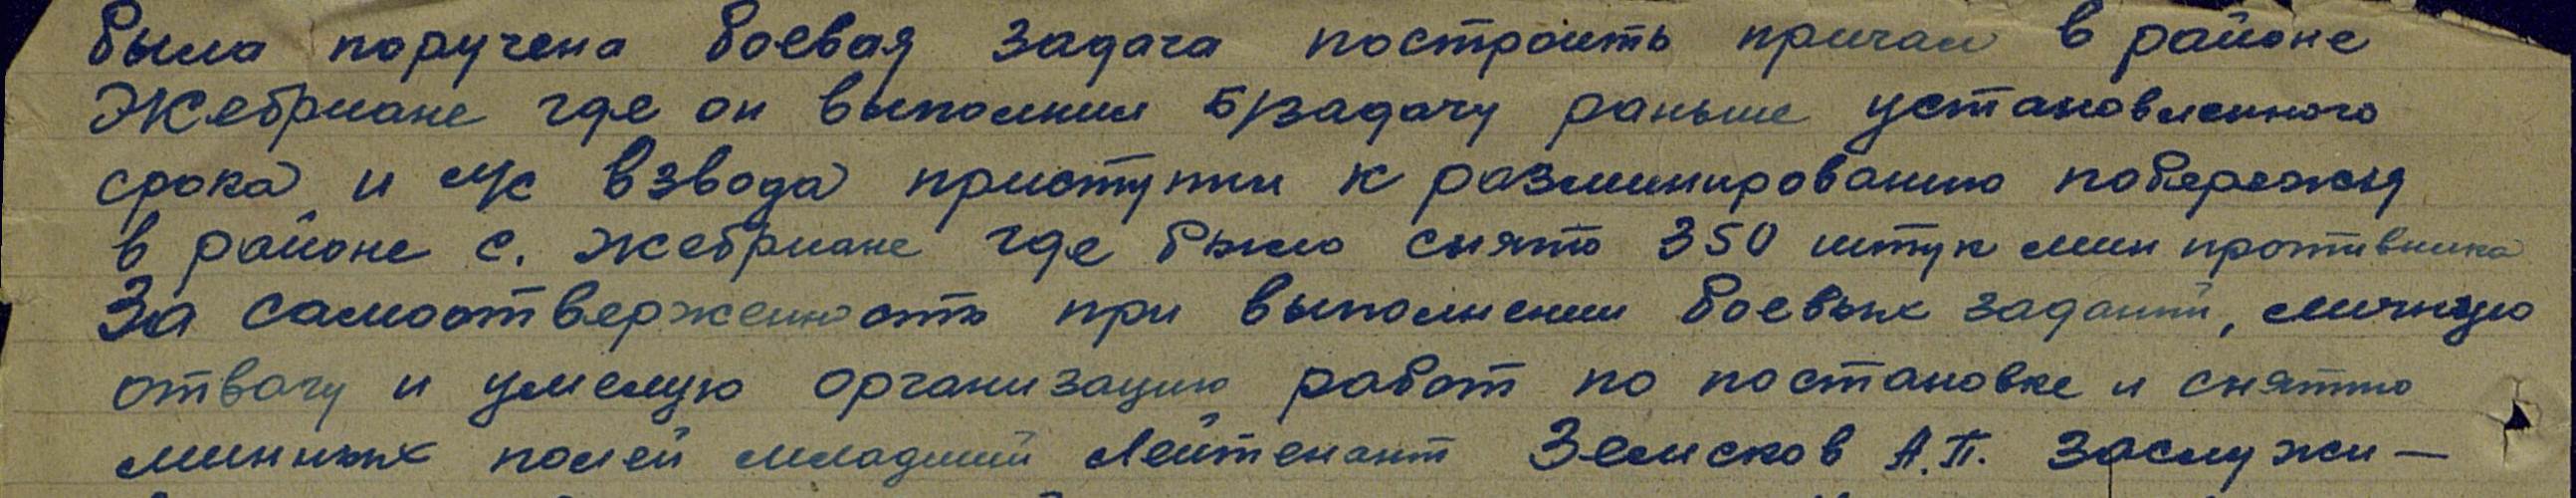 была поручена боевая задача построить причал в районе
Жебриане где он выполнил б/задачу раньше установленного
срока и л/с взвода приступил к разминированию побережья
в районе с. Жебриане где было снято 350 штук мин противника
За самоотверженность при выполнении боевых заданий, личную
отвагу и умелую организацию работ по постановке и снятию
минных полей младший лейтенант Земсков А.П. заслужи-